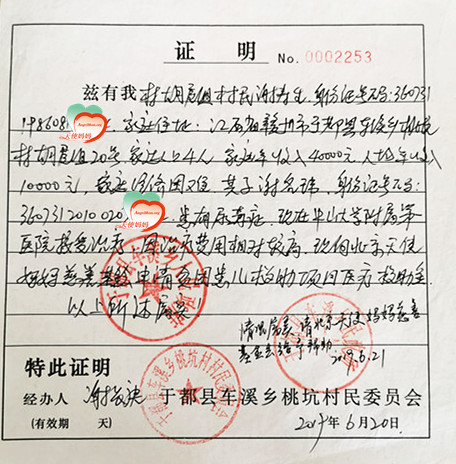 证 明 No. 0002253
兹有我村胡屋组村民谢寿生,身份证号码:360731
198608 天使妈妈 ,家庭住址:江西省赣州市于都县车溪乡桃坑
村胡屋组20号,家庭人口4人,家庭年收入40000元,人均年收入
10000元,家庭经济困难,其子谢 ,身份证号码:
3607312010020 ,患有尿毒症,现在中山大学附属第一
医院接受治疗,因治疗费用相对较高,现向北京天使
妈妈慈善基金申请贫困患儿救助项目医疗救助金
以上所述属实
情况属实,请北京天使妈妈慈善
基金会给予帮助
2019.6.21
特此证明
经办人 谢
于都县车溪乡桃坑村民委员会
(有效期 天)
2019年6月20日
于都县车溪乡人民政府
于都县车溪乡桃坑村村民委员会